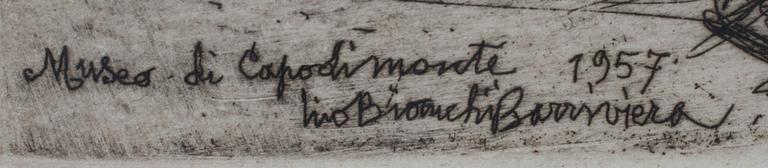 Museo di Capodimonte 1957.
Lino Bianchi Barriviera.